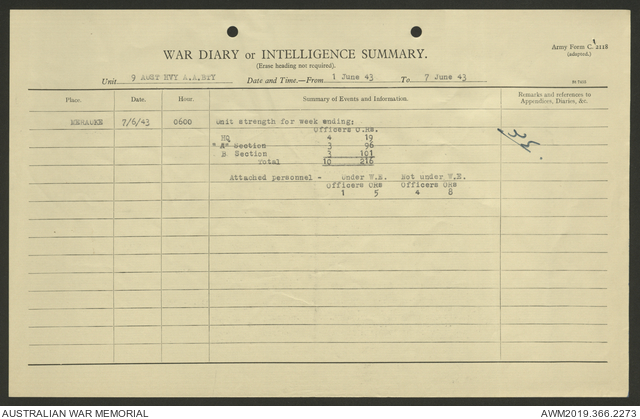 Army Form C. 2118
(adapted.)
WAR DIARY or INTELLIGENCE SUMMARY.
(Erase heading not required).
Unit 9 AUST HVY A.A.BTY Date and Time.—From 1 June 43 To 7 June 43
Place. Date. Hour. Summary of Events and Information. Remarks and references to
Appendices, Diaries, &c.
MERAUKE 7/6/43 0600 Unit strength for week ending:
Officers O.Rs.
HQ 4 19
"A" Section 3 96
B Section 3 101
Total 10 216
Attached personnel - Under W.E. Not under W.E.
Officers ORs Officers ORs
1 5 4 8
AUSTRALIAN WAR MEMORIAL AWM2019.366.2273